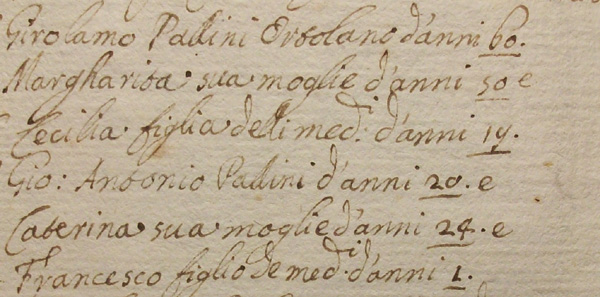 Girolamo Pallini Ortolano d'anni 60.
Margharita sua moglie d'anni 50 e
Cecilia figlia delli med:i d'anni 19.
Gio: Antonio Pallini d'anni 20. e
Caterina sua moglie d'anni 24. e
Francesco figlio de med:i d'anni 1.